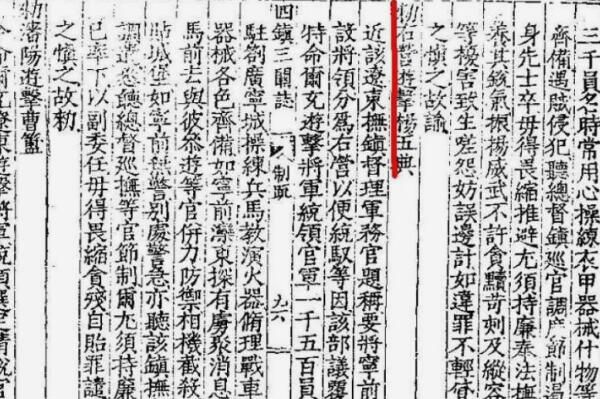 三千員名時常用心練衣甲器械什物等
齊備遇賊侵犯聽總督鎮巡官調度節制遏
身先士卒毋得畏縮推避尤須持廉奉法撫
養其銳氣振揚威武不許貪黷苛刻及縱容
等擾害致生嗟怨妨誤邊計如違罪不輕貸
之慎之故諭
勑右營遊擊楊五典
近該遼東撫鎮督理軍務官題稱要將寧前
設將領分為右營以便統馭等因該部議覆
特命爾充遊擊將軍統領官軍一千五百員
四鎮三關誌 制疏 九六
駐劄廣寧城操練兵馬教演火器脩理戰車
器械各色齊備如寧前瀋東探有虜聚消息
馬前去與彼參遊等官併力防禦相機截殺
城堡如寧前稍警別處警急亦聽該鎮撫
調遣悉聽總督巡撫等官節制爾尤須持廉
己率下以副委任毋得畏縮貪殘自貽罪譴
之慎之故勑
勑瀋陽遊擊曹簠